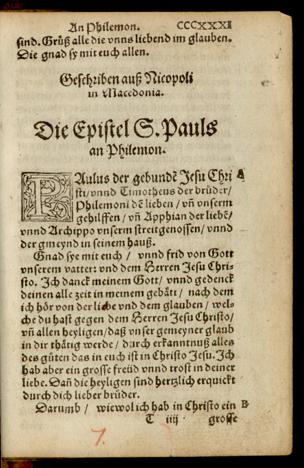 An Philemon. CCCXXXII
sind. Grüß alle die vnns liebend im glauben.
Die gnad sy mit euch allen.
Geschriben auß Nicopoli
in Macedonia.
Die Epistel S. Pauls
an Philemon.
PAulus der gebundẽ Jesu Chri A
sti/ vnnd Timotheus der brůder/
Philemoni dẽ lieben / vñ vnserm
gehilffen / vñ Apphian der liebẽ/
vnnd Archippo vnserm streitgenossen / vnnd
der gmeynd in seinem hauß.
Gnad sye mit euch / vnnd frid von Gott
vnserem vatter: vnd dem Herren Jesu Chri-
sto. Ich danck meinem Gott/ vnnd gedenck
deinen alle zeit in meinem gebätt/ nach dem
ich hör von der liebe vnd dem glauben / wel-
che du hast gegen dem Herren Jesu Christo/
vñ allen heyligen/ daß vnser gemeyner glaub
in dir thätig werde / durch erkanntnuß alles
des gůten das in euch ist in Christo Jesu. Ich
hab aber ein grosse freüd vnnd trost in deiner
liebe. Dañ die heyligen sind hertzlich erquickt
durch dich lieber brůder
Darumb / wiewol ich hab in Christo ein B
T iiij grosse
7.